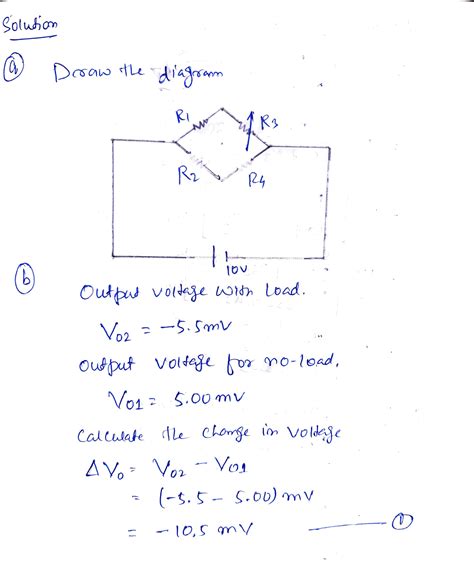 Solution
(a) Draw the diagram
R1 R3
R2 R4
10V
(b)
Output voltage with Load.
Vo2 = -5.5mV
Output voltage for no-load,
Vo1 = 5.00 mV
Calculate the change in voltage
ΔVo = Vo2 - Vo1
= (-5.5 - 5.00) mV
= -10.5 mV ——— (1)